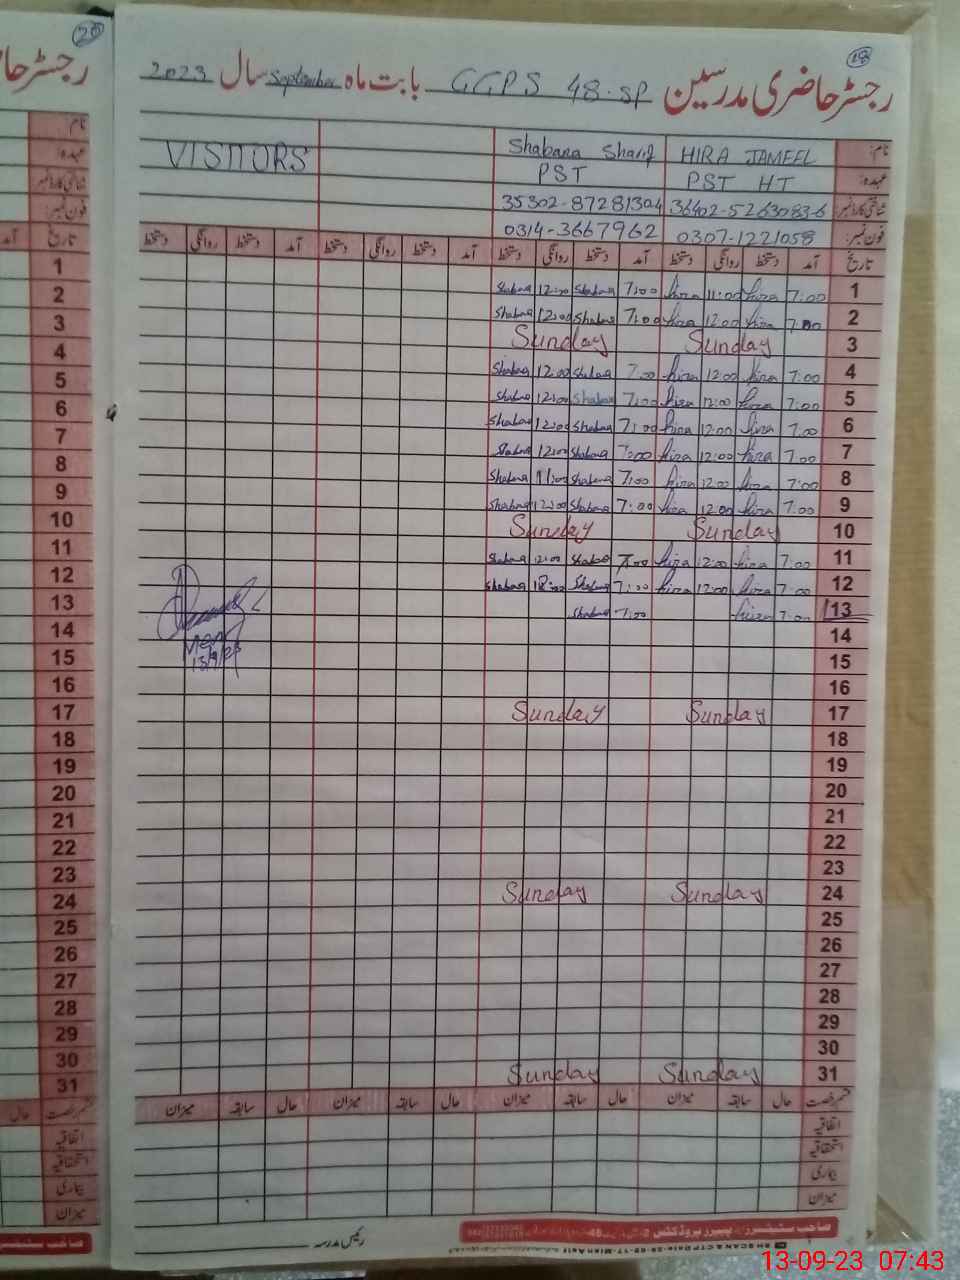 20
18
رجسٹر حاضری مدرسین GGPS 48.SP بابت ماہ September سال 2023
نام: HIRA JAMEEL Shabana Sharif VISITORS
عہدہ: PST HT PST
شناختی کارڈ نمبر 36402-5263083-6 35302-8728130-4
فون نمبر: 0307-1221058 0314-3667962
تاریخ آمد دستخط روانگی دستخط آمد دستخط روانگی دستخط آمد دستخط روانگی دستخط آمد دستخط روانگی دستخط
1 7:00 hira 11:00 hira 7:00 Shabana 12:00 Shabana
2 7:00 hira 12:00 hira 7:00 Shabana 12:00 Shabana
3 Sunday Sunday
4 7:00 hira 12:00 hira 7:00 Shabana 12:00 Shabana
5 7:00 hira 12:00 hira 7:00 Shabana 12:00 Shabana
6 7:00 hira 12:00 hira 7:00 Shabana 12:00 Shabana
7 7:00 hira 12:00 hira 7:00 Shabana 12:00 Shabana
8 7:00 hira 12:00 hira 7:00 Shabana 11:00 Shabana
9 7:00 hira 12:00 hira 7:00 Shabana 12:00 Shabana
10 Sunday Sunday
11 7:00 hira 12:00 hira 7:00 Shabana 12:00 Shabana
12 7:00 hira 12:00 hira 7:00 Shabana Shabana
13 7:00 hira 7:00 Shabana
13/9/23
14
15
16
17 Sunday Sunday
18
19
20
21
22
23
24 Sunday Sunday
25
26
27
28
29
30
31 Sunday Sunday
قسم رخصت حال سابقہ میزان حال سابقہ میزان حال سابقہ میزان حال سابقہ میزان
اتفاقیہ
استحقاقیہ
بیماری
میزان
رئیس مدرسہ
13-09-23 07:43
رجسٹر حا
نام:
عہدہ:
شناختی کارڈ نمبر
فون نمبر:
تاریخ آمد
1
2
3
4
5
6
7
8
9
10
11
12
13
14
15
16
17
18
19
20
21
22
23
24
25
26
27
28
29
30
31
قسم رخصت حال
اتفاقیہ
استحقاقیہ
بیماری
میزان